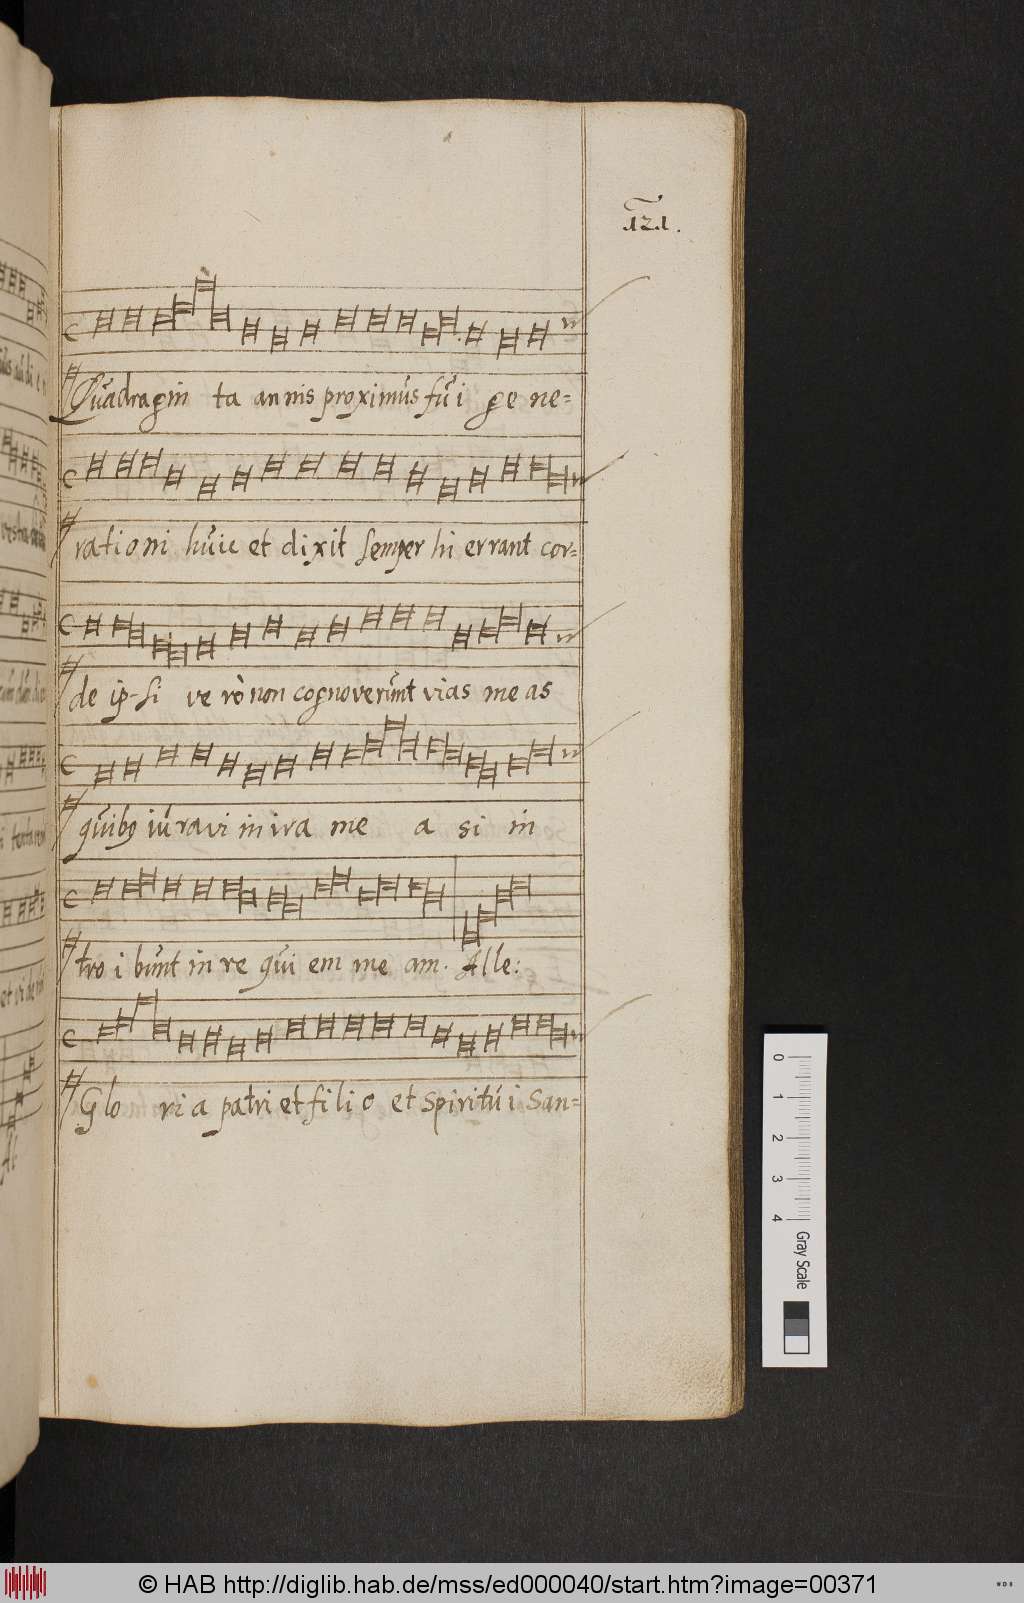 121.
Quadragin ta annis proximus fui ge ne=
rationi huic et dixit semper hi errant cor=
de ip-si ve rò non cognoverunt vias me as
quibg iuravi in ira me a si in
tro i bunt in re qui em me am. Alle:
Glo ri a patri et fi li o et spiritui San=
0
1
2
3
4
Gray Scale
© HAB http://diglib.hab.de/mss/ed000040/start.htm?image=00371